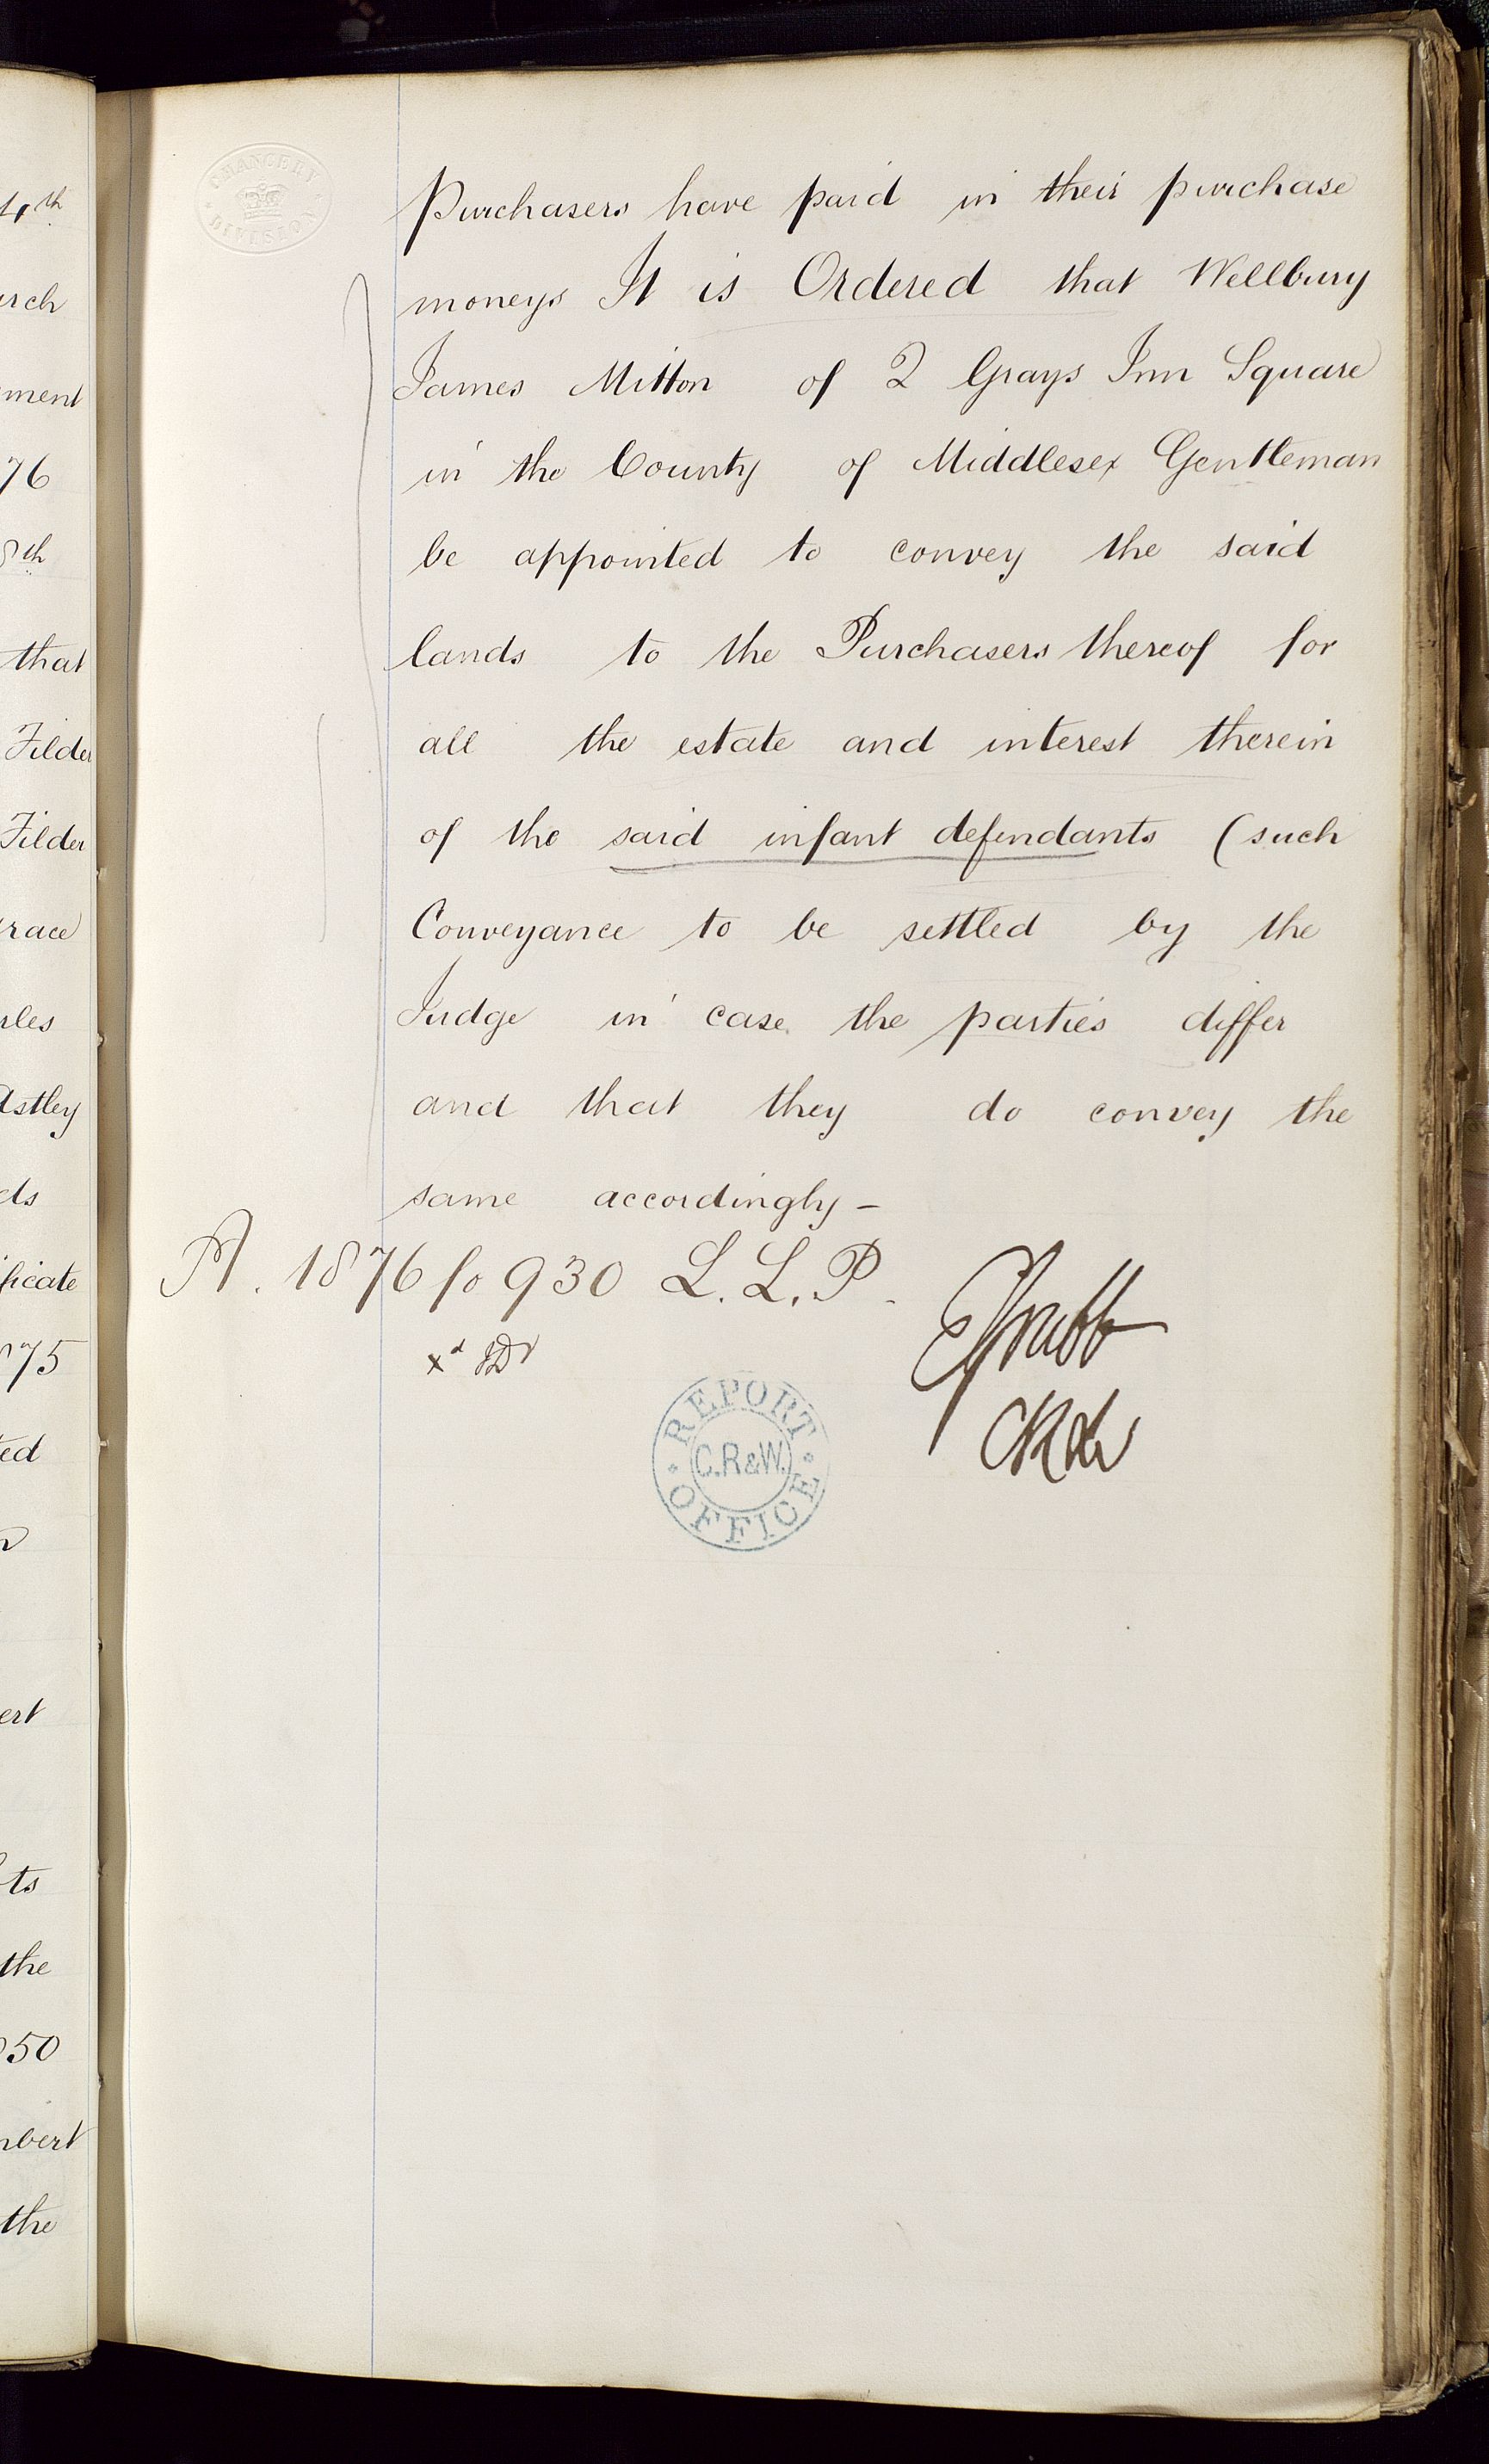 4th
arch
ment
76
8th
that
Filder
Filder
race
rles
Astley
ds
ficate
875
ted
ert
ts
the
50
mbert
the
CHANCERY DIVISION
Purchasers have paid in their purchase
moneys It is Ordered that Wellbury
James Mitton of 2 Grays Inn Square
in the County of Middlesex Gentleman
be appointed to convey the said
lands to the Purchasers thereof for
all the estate and interest therein
of the said infant defendants (such
Conveyance to be settled by the
Judge in case the parties differ
and that they do convey the
same accordingly –
A. 1876 fo 930 L. L. P.
REPORT OFFICE
C.R&W.